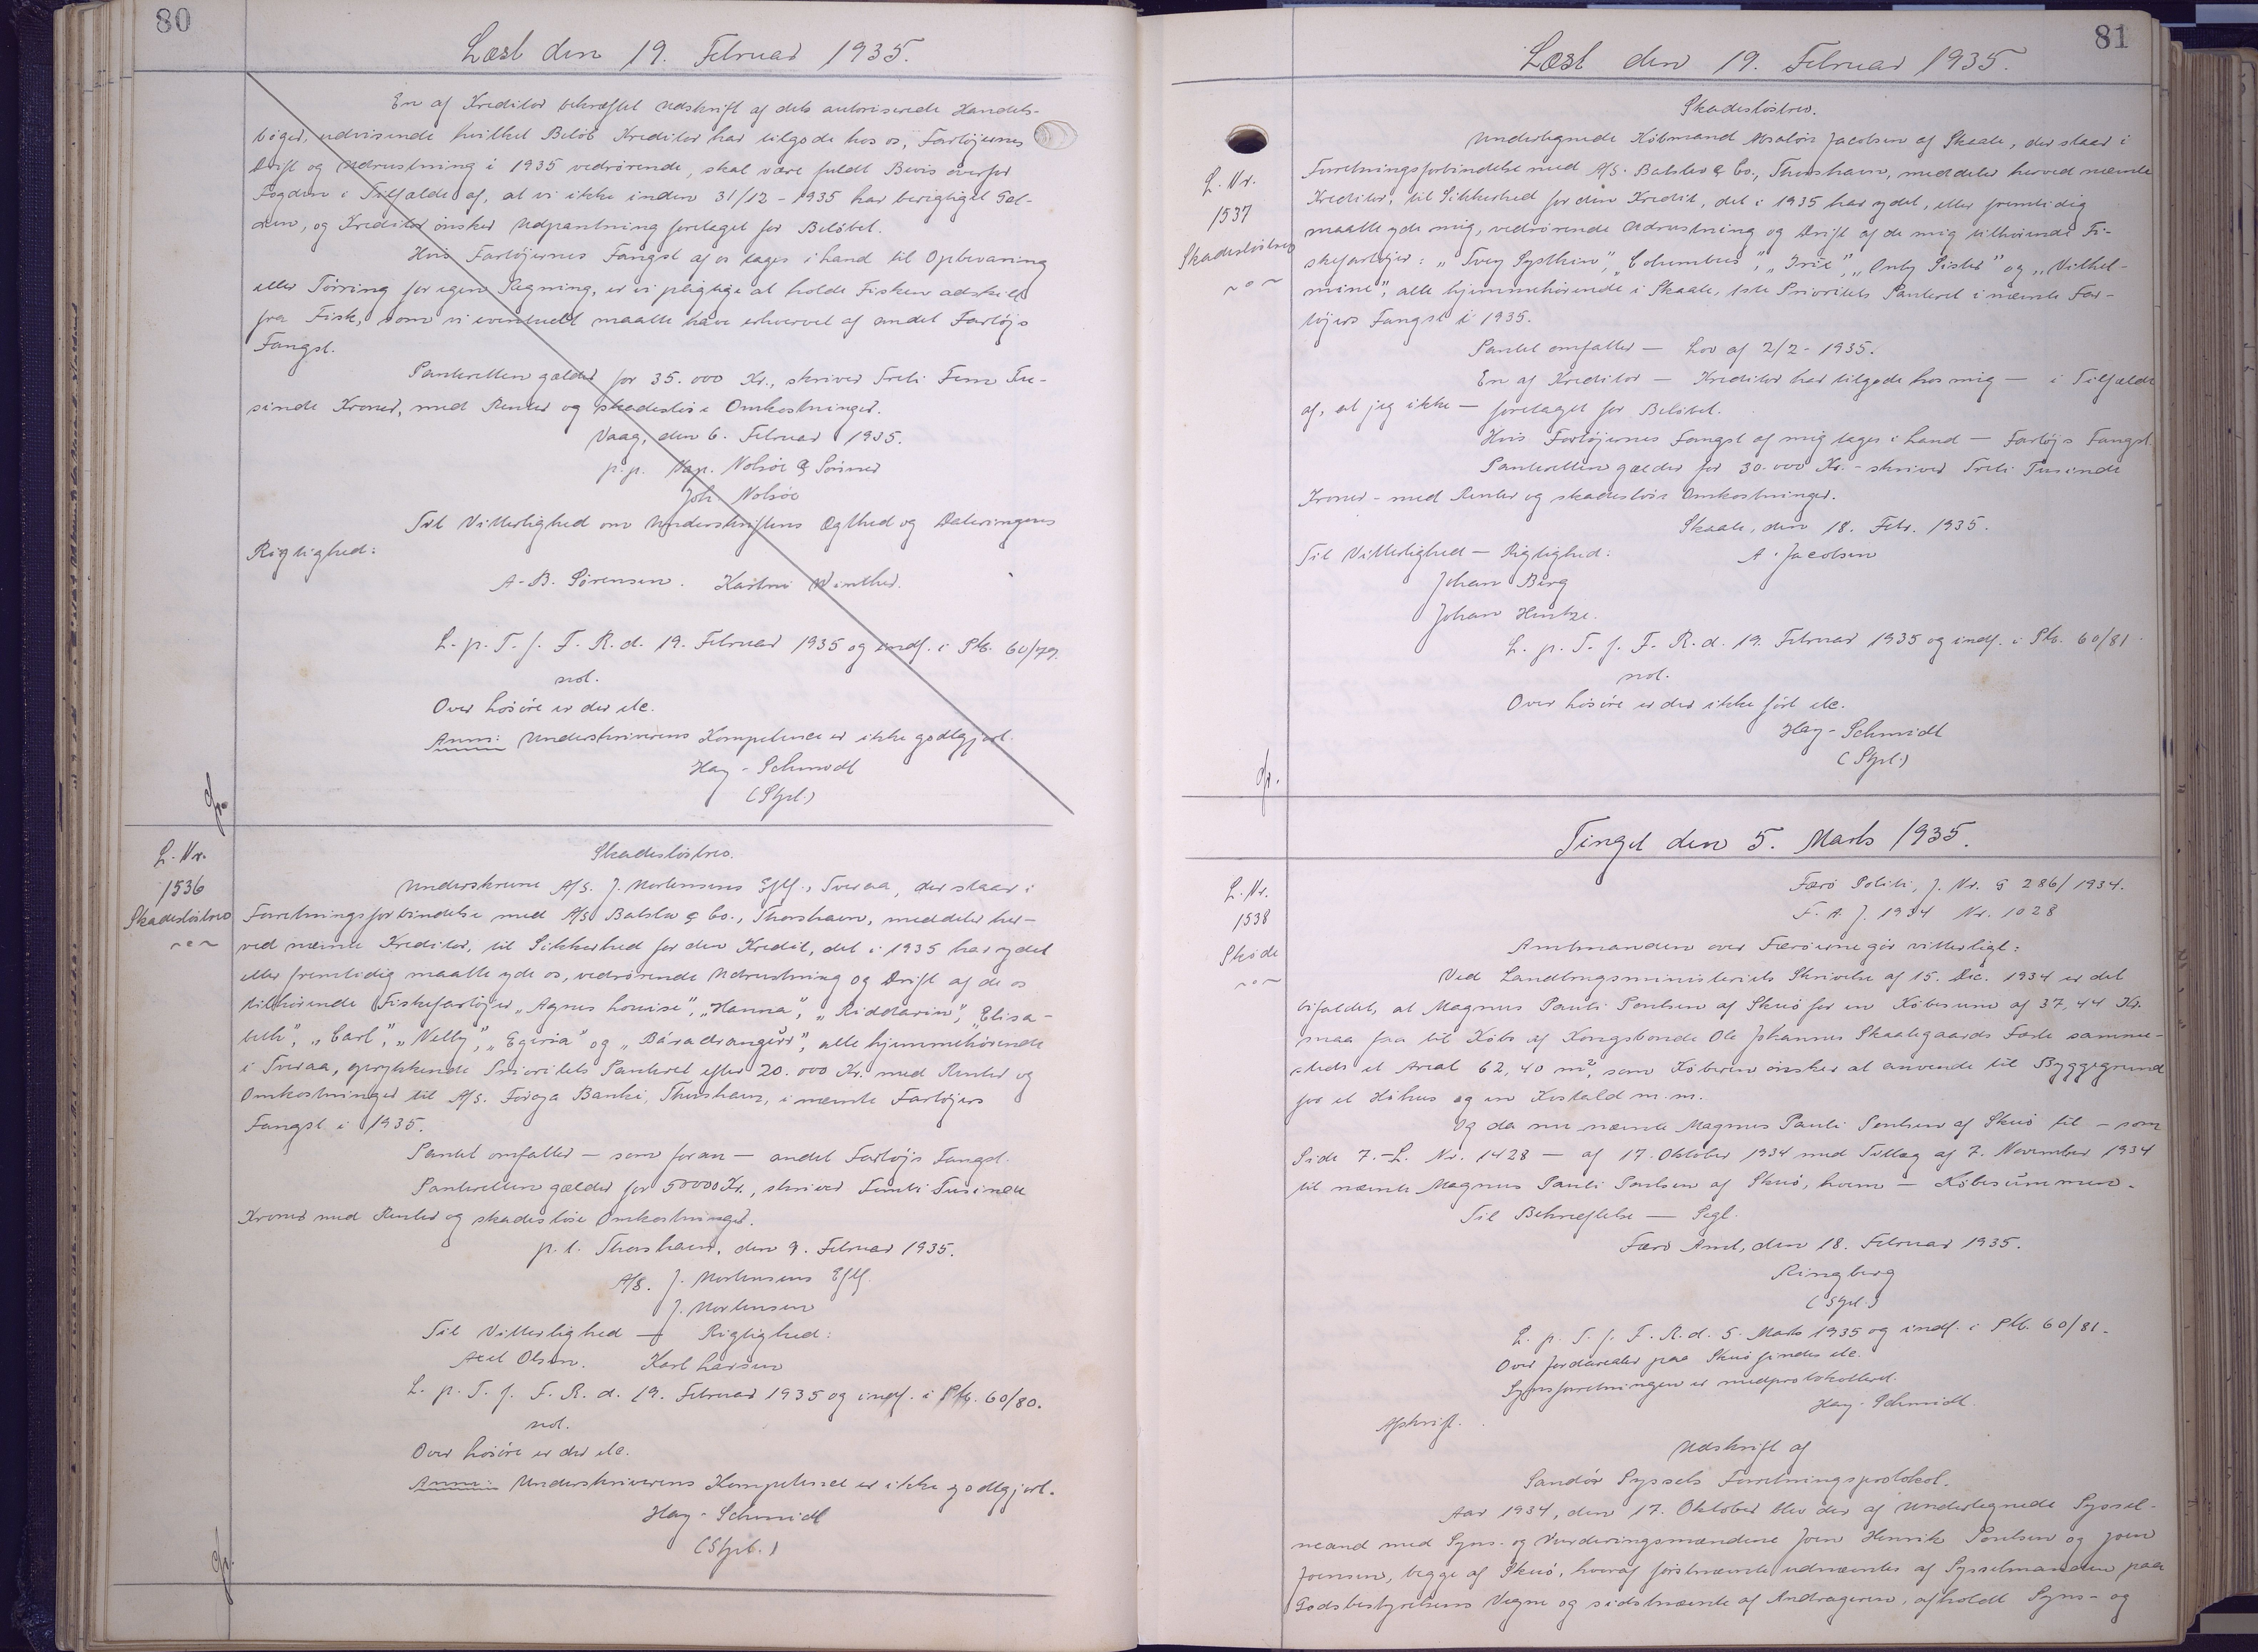 80
Læst den 19. Februar 1935.
En af Kreditor bekræftet Udskrift af dets autoriserede Handels-
bøger, udvisende hvilket Beløb Kreditor har tilgode hos os, Fartøjernes
Drift og Udrustning i 1935 vedrørende, skal være fuldt Bevis overfor
Fogden i Tilfælde af, at vi ikke inden 31/12 - 1935 har berigtiget Gæl-
den, og Kreditor ønsker Udpantning foretaget for Beløbet.
Hvis Fartøjernes Fangst af os tages i Land til Opbevaring
eller Tørring for egen Regning, er vi pligtige at holde Fisken adskilt
fra Fisk, som vi eventuelt maatte have erhvervet af andet Fartøjs
Fangst.
Panteretten gælder for 35.000 Kr., skriver Treti Fem Tu-
sinde Kroner, med Renter og skadesløse Omkostninger.
Vaag, den 6. Februar 1935.
p.p. Nap. Nolsøe & Sønner
Joh Nolsøe
Til Vitterlighed om Underskriftens Ægthed og Dateringens
Rigtighed:
A.B. Sørensen. Winther.
L. p. T. f. F. R. d. 19. Februar 1935 og indf. i Ptb. 60/79.
not.
Over Løsøre er der etc.
Anm: Underskriverens Kompetence er ikke godtgjort.
Hay-Schmidt
(Stpl.)
L. Nr.
1536
Skadesløsbrev
Skadesløsbrev.
Underskrevne A/S. J. Mortensens Eftf., Tveraa, der staar i
Forretningsforbindelse med A/S Balslev & Co., Thorshavn, meddeler her-
ved nævnte Kreditor, til Sikkerhed for den Kredit, det i 1935 har ydet
eller fremtidig maatte yde os, vedrørende Udrustning og Drift af de os
tilhørende Fiskefartøjer „Agnes Louise", „Hanna", „Riddarin", „Elisa-
beth", „Carl", „Nelly", „Egeria" og „Báradrangur", alle hjemmehørende
i Tveraa, oprykkende Prioritets Panteret efter 20.000 Kr. med Renter og
Omkostninger til A/S. Føroya Banki, Thorshavn, i nævnte Fartøjers
Fangst i 1935.
Pantet omfatter — som foran — andet Fartøjs Fangst.
Panteretten gælder for 50000 Kr., skriver Femti Tusinde
Kroner med Renter og skadesløse Omkostninger.
p.t. Thorshavn, den 9. Februar 1935.
A/S. J. Mortensens Eftf.
J. Mortensen
Til Vitterlighed — Rigtighed:
Axel Olsen. Karl Larsen
L. p. T. f. F. R. d. 19. Februar 1935 og indf. i Ptb. 60/80.
not.
Over Løsøre er der etc.
Anm: Underskriverens Kompetence er ikke godtgjort.
Hay-Schmidt
(Stpl.)
81
Læst den 19. Februar 1935.
L. Nr.
1537
Skadesløsbrev
Skadesløsbrev.
Undertegnede Købmand Absalon Jacobsen af Skaale, der staar i
Forretningsforbindelse med A/S. Balslev & Co., Thorshavn, meddeler herved nævnte
Kreditor, til Sikkerhed for den Kredit, det i 1935 har ydet, eller fremtidig
maatte yde mig, vedrørende Udrustning og Drift af de mig tilhørende Fi-
skefartøjer: „Tvey Systkin", „Columbus", „Iris", „Only Sister" og „Vilhel-
mine", alle hjemmehørende i Skaale, 1ste Prioritets Panteret i nævnte Far-
tøjers Fangst i 1935.
Pantet omfatter — Lov af 2/2 - 1935.
En af Kreditor — Kreditor har tilgode hos mig — i Tilfælde
af, at jeg ikke — foretaget for Beløbet.
Hvis Fartøjernes Fangst af mig tages i Land — Fartøjs Fangst.
Panteretten gælder for 30.000 Kr. - skriver Treti Tusinde
Kroner - med Renter og skadesløse Omkostninger.
Skaale, den 18. Febr. 1935.
Til Vitterlighed — Rigtighed: A. Jacobsen
Johan Berg
Johan Hentze.
L. p. T. f. F. R. d. 19. Februar 1935 og indf. i Ptb. 60/81.
not.
Over Løsøre er der ikkeført etc.
Hay-Schmidt
(Stpl.)
Tinget den 5. Marts 1935.
L. Nr.
1538
Skøde
Færø Politi, J. Nr. G 286/1934.
F. A. J. 1934 Nr. 1028
Amtmanden over Færøerne gør vitterligt:
Ved Landbrugsministeriets Skrivelse af 15. Dec. 1934 er det
bifaldet, at Magnus Pauli Poulsen af Skuø for en Købesum af 37,44 Kr.
maa faa til Købs af Kongsbonde Ole Johannes Skaalegaards Fæste samme-
steds et Areal 62,40 m², som Køberen ønsker at anvende til Byggegrund
for et Høhus og en Kostald m.m.
Og da nu nævnte Magnus Pauli Poulsen af Skuø til — som
Side 7. - L. Nr. 1428 — af 17. Oktober 1934 med Tillæg af 7. November 1934
til nævnte Magnus Pauli Poulsen af Skuø, hvem — Købesummen.
Til Bekræftelse — Segl.
Færø Amt, den 18. Februar 1935.
Ringberg
(Stpl.)
L. p. T. f. F. R. d. 5. Marts 1935 og indf. i Ptb. 60/81.
Over Jordarealer paa Skuø findes etc.
Synsforretningen er medprotokolleret.
Hay-Schmidt
Afskrift.
Udskrift af
Sandø Syssels Forretningsprotokol.
Aar 1934, den 17. Oktober blev der af undertegnede Syssel-
mand med Syns- og Vurderingsmændene Joen Henrik Poulsen og Joen
Joensen, begge af Skuø, hvoraf førstnævnte udnævntes af Sysselmanden paa
Godsbestyrelsens Vegne og sidstnævnte af Andrageren, afholdt Syns- og